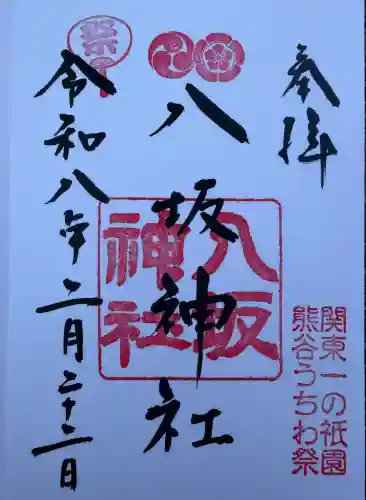 奉拝
関東一の祇園
熊谷うちわ祭
八坂神社
八坂神社
祭
令和八年二月二十二日